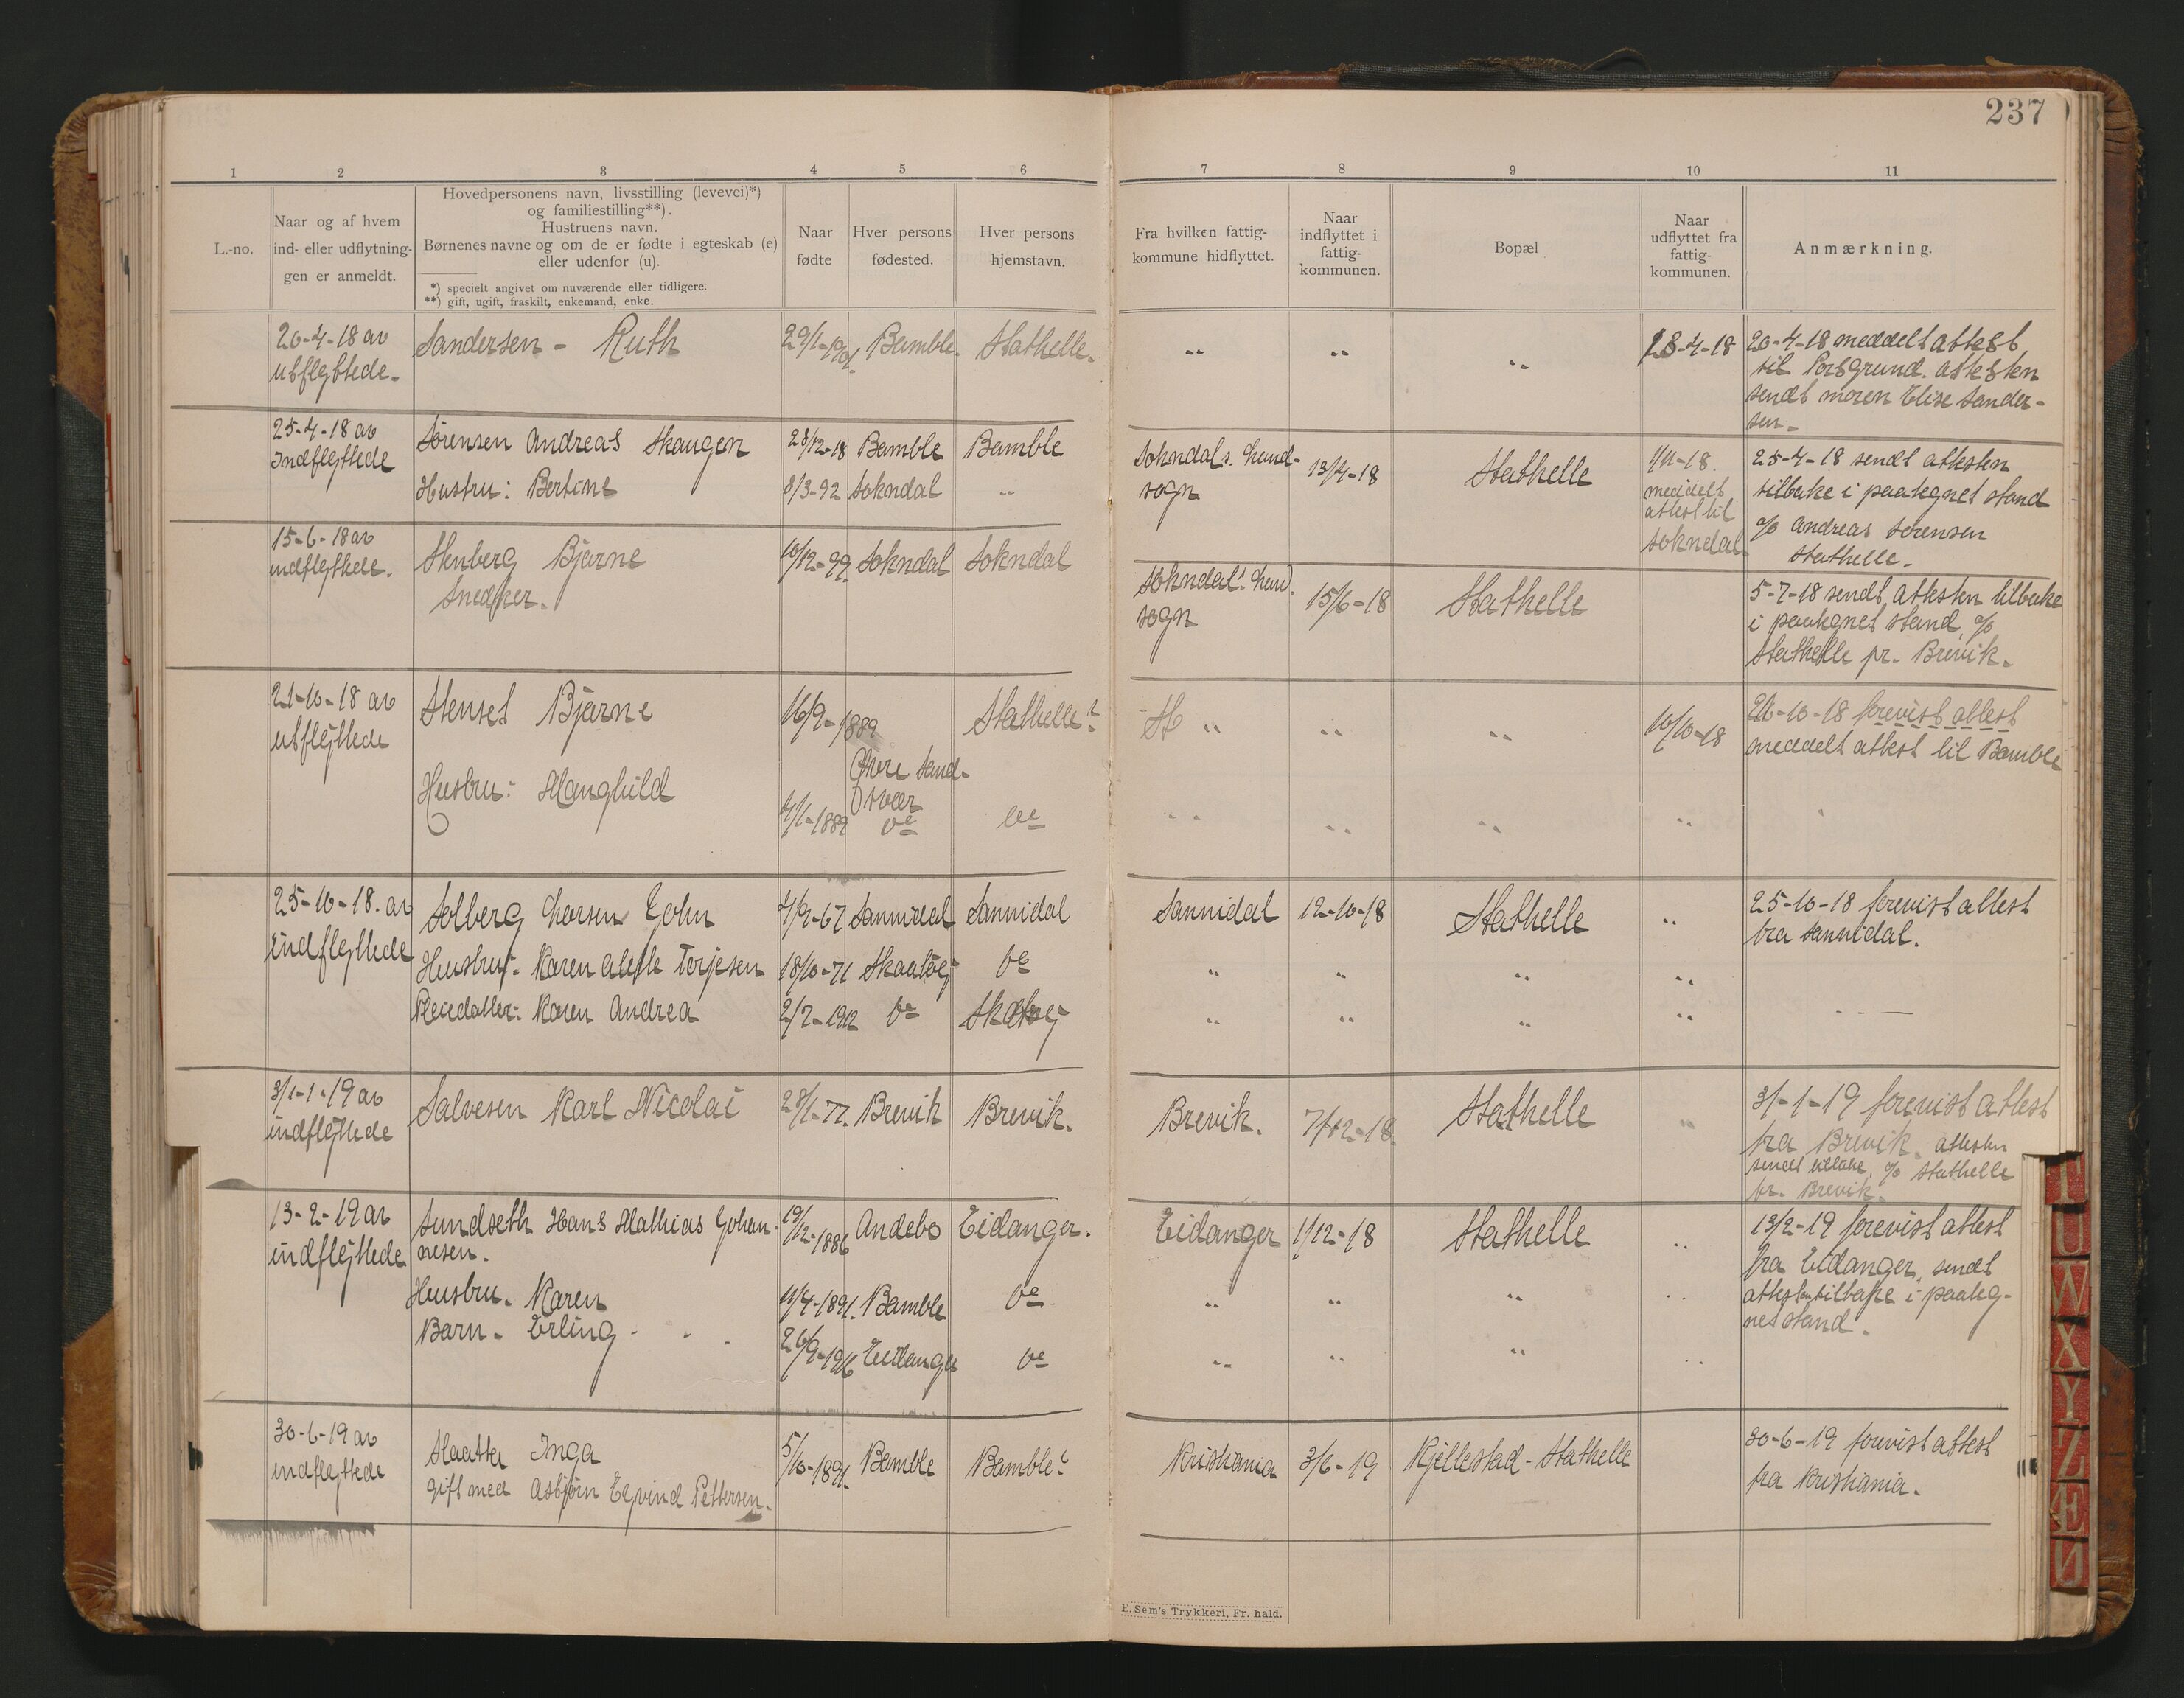 237
1 2 3 4 5 6 7 8 9 10 11
L.-no.
Naar og af hvem
ind- eller udflytnin-
gen er anmeldt.
Hovedpersonens navn, livsstilling (levevei)*)
og familiestilling**).
Hustruens navn.
Børnenes navne og om de er fødte i egteskab (e)
eller udenfor (u).
*) specielt angivet om nuværende eller tidligere.
**) gift, ugift, fraskilt, enkemand, enke.
Naar
fødte
Hver persons
fødested.
Hver persons
hjemstavn.
Fra hvilken fattig-
kommune hidflyttet.
Naar
indflyttet i
fattig-
kommunen.
Bopæl
Naar
udflyttet fra
fattig-
kommunen.
Anmærkning.
20-4-18 av
utflyttede.
Sandersen - Ruth
Bamble.
Stathelle.
" " "
18-4-18
20-4-18 meddelt attest
til Porsgrund. attesten
sendt moren Elise Sander-
sen.
25-4-18 av
Indflyttede
Sørensen Andreas Skaugen
28/12-18
Bamble
Bamble
Hustru: Bertine
8/3-92
Sokndal
"
Sokndal s. Land-
sogn
13/4-18
Stathelle
1/11-18.
meddelt
attest til
Sokndal
25-4-18 sendt attesten
tilbake i paategnet stand
a/o Andreas Sørensen
Stathelle.
15-6-18 av
indflyttede.
Stenberg Bjarne
Snedker.
10/12-99.
Sokndal
Sokndal
Sokndals Land.
sogn
15/6-18
Stathelle
5-7-18 sendt attesten tilbake
i paategnet stand a/o
Stathelle pr. Brevik.
21-10-18 av
utflyttede
Stenset Bjarne
16/9-1889
Øvre Sand-
svær
Stathelle?
St " " "
10/10-18
21-10-18 forevist attest
meddelt attest til Bamble
Hustru: Manghild
4/1-1889
do
do
" " " "
25-10-18. av
indflyttede
Solberg Larsen John
4/9-67
Sannidal
Sannidal
Sannidal
12-10-18
Stathelle
"
25-10-18 forevist attest
fra Sannidal.
Hustru: Karen Terjesen
18/10-71
Skaatøj
do
" " " "
Pleiedatter: Karen Andrea
2/7-1912
do
Skatøj
" " " "
31-1-19 av
indflyttede
Salvesen Karl Nicolai
28/1-77.
Brevik
Brevik.
Brevik.
7/12-18.
Stathelle
"
31-1-19 forevist attest
fra Brevik. attesten
sendt tilbake a/o Stathelle
pr. Brevik.
13-2-19 av
indflyttede
Sundseth Hans Mathias Johan-
nesen.
19/12-1886
Andebo
Eidanger.
Eidanger
1/12-18
Stathelle
"
13/2-19 forevist attest
fra Eidanger, sendt
attesten tilbake i paateg-
net stand.
Hustru. Karen
11/4-1891.
Bamble
do
" " " "
Barn. Erling
26/9-1916
Eidanger
do
" " " "
30-6-19 av
indflyttede
Slaatta Inga
gift med Asbjørn Eyvind Pettersen.
5/10-1891.
Bamble
Bamble?
Kristiania
3/6-19
Kjellestad - Stathelle
30-6-19 forevist attest
fra Kristiania.
E. Sem's Trykkeri, Fr. hald.
U
W
X
Y
Z
Æ